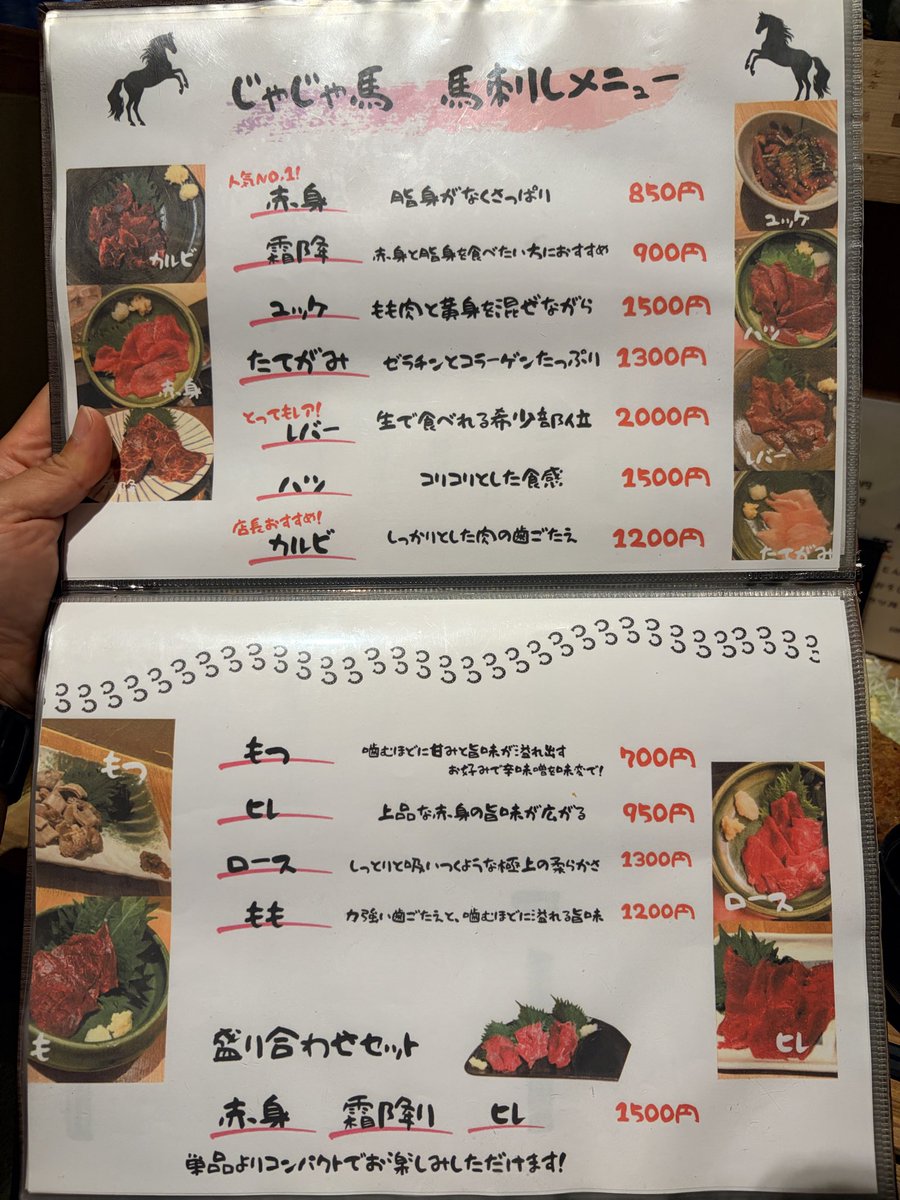 じゃじゃ馬 馬刺しメニュー
人気NO.1!
赤身 脂身がなくさっぱり 850円
霜降 赤身と脂身を食べたい方におすすめ 900円
ユッケ もも肉と黄身を混ぜながら 1500円
たてがみ ゼラチンとコラーゲンたっぷり 1300円
とってもレア!
レバー 生で食べれる希少部位 2000円
ハツ コリコリとした食感 1500円
店長おすすめ!
カルビ しっかりとした肉の歯ごたえ 1200円
カルビ
赤身
ユッケ
ハツ
レバー
たてがみ
もつ 噛むほどに甘みと旨味が溢れ出す
お好みで辛味噌を味変で! 700円
ヒレ 上品な赤身の旨味が広がる 950円
ロース しっとりと吸いつくような極上の柔らかさ 1300円
もも 力強い歯ごたえと、噛むほどに溢れる旨味 1200円
もつ
も
ロース
ヒレ
盛り合わせセット
赤身 霜降り ヒレ 1500円
単品よりコンパクトでお楽しみしただけます!